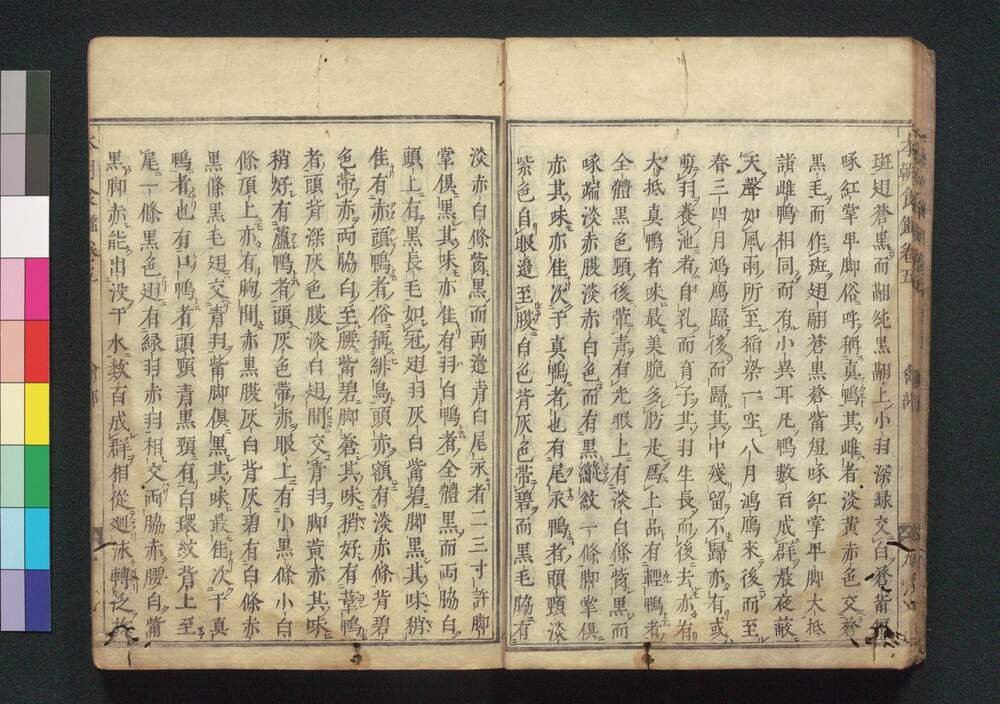 斑翅蒼黒而翮純黒翮上小羽深緑交白蒼觜
啄紅掌卑脚俗呼稱真鴨其雌者淡黄赤色交蒼
黒毛而作斑翅翮蒼黒蒼觜短啄紅掌卑脚大抵
諸雌鴨相同而有小異耳凡鴨數百成群晨夜蔽
天聲如風雨所至稲粱一空八月鴻鴈来後而至
春三四月鴻鴈歸後而歸其中殘留不歸亦有或
剪羽養池者自乳而育子其羽生長而後去亦有
大抵真鴨者味最美脆多肪是爲上品有輕鴨者
全體黒色頸後帶青有光眼上有淡白條觜黒而
啄端淡赤膜淡赤白色而有黒縧紋一條脚掌倶
赤其味亦佳次于真鴨者也有尾永鴨者頭頸淡
紫色自眼邉至膜白色背灰色帶碧而黒毛脇有
淡赤白條觜黒而両邉青白尾永者二三寸許脚
掌倶黒其味亦佳有羽白鴨者全體黒而両脇白
頭上有黒長毛如冠翅羽灰白觜碧脚黒其味稍
佳有赤頭鴨者俗稱緋鳥頭赤額有淡赤條背碧
色帶赤両脇白至腰觜碧脚蒼其味稍好有葦鴨
者頭背深灰色膜淡白翅間交青羽脚黄赤其味
稍好有蘆鴨者頭灰色帶赤眼上有小黒條小白
條頂上亦有胸間赤黒膜灰白背灰碧有白條赤
黒條黒毛翅交青羽觜脚倶黒其味最佳次于真
鴨者也有口鴨者頭頸青黒頸有白環紋背上至
尾一條黒色翅有緑羽赤羽相交両脇赤腰白觜
黒脚赤能出没于水数百成群相從廻泳轉乏